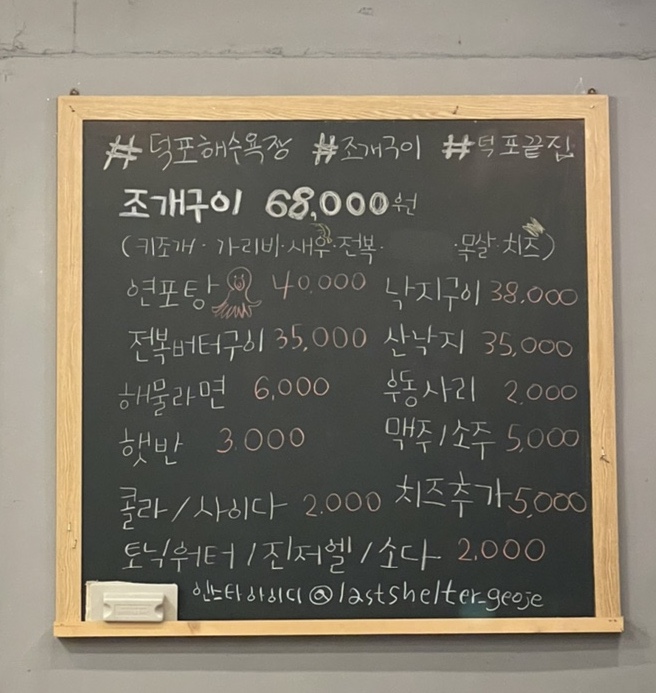 #덕포해수욕장 #조개구이 #덕포끝집
조개구이 68,000원
(키조개·가리비·새우·전복· ·목살·치즈)
연포탕 40,000 낙지구이 38,000
전복버터구이 35,000 산낙지 35,000
해물라면 6,000 우동사리 2,000
햇반 3,000 맥주/소주 5,000
콜라/사이다 2,000 치즈추가 5,000
토닉워터/진저엘/소다 2,000
인스타아이디 @lastshelter_geoje